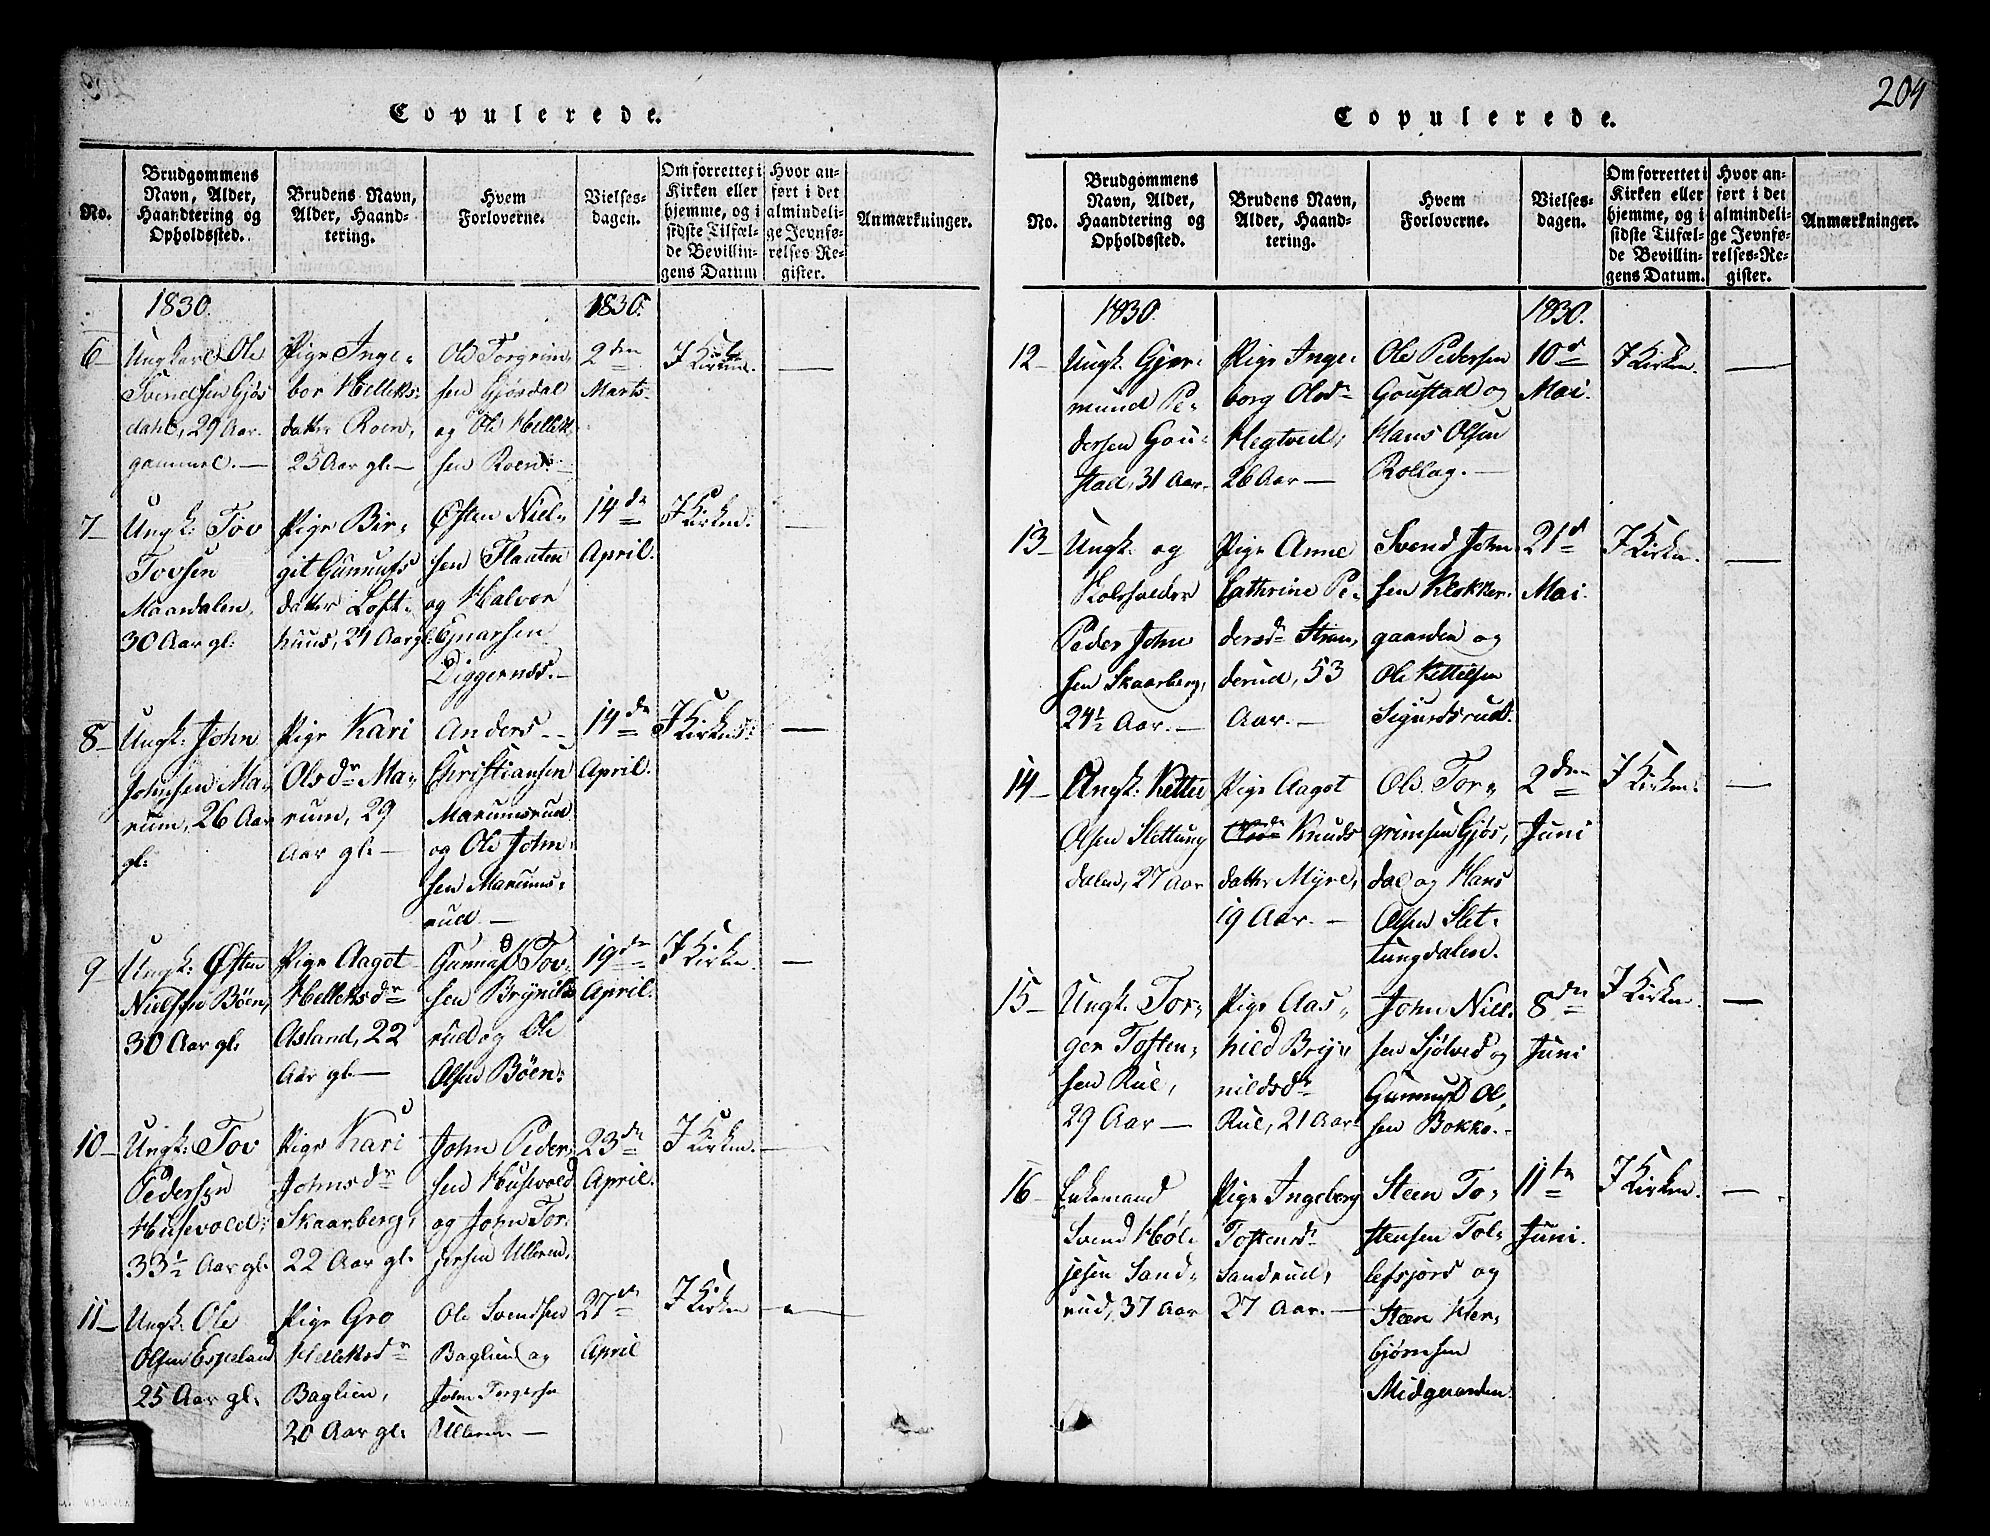 204
Copulerede.
No.
Brudgommens Navn, Alder, Haandtering og Opholdssted.
Brudens Navn, Alder, Haandtering.
Hvem Forloverne.
Vielsesdagen.
Om forrettet i Kirken eller hjemme, og i sidste Tilfælde Bevillingens Datum
Hvor anført i det almindelige Jevnførelses-Register.
Anmærkninger.
1830.
1830.
6
Ungkarl Ole
Svendsen Gjøs
dahl, 29 Aar
gammel. —
Pige Inge-
bor Helleks-
datter Roen,
25 Aar gl. —
Ole Torgrim-
sen Gjøsdal
og Ole Hellek
sen Roen. —
2den
Marts.
I Kirken.
—
7
Ungk: Tov
Tovsen
Maardalen,
30 Aar gl:
Pige Bir-
git Gunnufs
datter Loft-
huus, 21 Aar gl:
Østen Niel-
sen Flaaten
og Halvor
Ejnarsen
Diggernæs. —
14de
April.
I Kirken.
—
8
Ungk: John
Johnsen Ma-
rum, 26 Aar
gl:
Pige Kari
Olsdr Ma-
rum, 29
Aar gl: —
Anders
Christiansen
Marumsrud
og Ole John-
sen Marums-
rud. —
14de
April.
I Kirken:
—
9
Ungk: Østen
Nielsen Böen,
30 Aar gl:
Pige Aagot
Helleksdr
Asland, 22
Aar gl —
Tov-
sen Brynilds
rud og Ole
Olsen Böen:
19de
April.
I Kirken
—
10
Ungk: Tov
Pedersen
Husevold,
33½ Aar gl:
Pige Kari
Johnsdr
Skaarberg,
22 Aar gl:
John Peder-
sen Husevold
og John Tor-
gersen Ulleren,
23de
April.
I Kirken.
—
11
Ungk: Ole
Olsen Espeland
25 Aar gl.
Pige Gro
Helleksdr
Baglien,
20 Aar gl:
Ole Svendsen
Baglien og
John Torgersen
Ulleren. —
27de
April
I Kirken
—
Copulerede.
No.
Brudgommens Navn, Alder, Haandtering og Opholdssted.
Brudens Navn, Alder, Haandtering.
Hvem Forloverne.
Vielsesdagen.
Om forrettet i Kirken eller hjemme, og i sidste Tilfælde Bevillingens Datum.
Hvor anført i det almindelige Jevnførelses-Register.
Anmærkninger.
1830.
1830.
12
Ungk. Gjer-
mund Pe-
dersen Gou-
stad, 31 Aar.
Pige Inge-
borg Olsdr
Hegtveit,
26 Aar —
Ole Pedersen
Goustad og
Hans Olsen
Rollag. —
10d
Mai.
I Kirken.
—
13
Ungk. og
Peder John
sen Skaarberg,
24½ Aar. —
Pige Anne
Cathrine Pe-
dersdr Stran-
derud, 53
Aar. —
Svend John
sen Klokker-
gaarden og
Ole Kettilsen
Sigurdsrud.
21d
Mai.
I Kirken.
—
14
Ungk: Kettil
Olsen Slettung
dalen, 27 Aar
Pige Aagot
Knuds
datter Myre,
19 Aar. —
Ole Tor-
grimsen Gjøs-
dal og Hans
Olsen Slet-
tungdalen.
2den
Juni
I Kirken.
—
15
Ungk. Tor-
ger Tosten-
sen Rue,
29 Aar —
Pige Aas-
hild Bryn
nildsdr
Rue, 21 Aar
John Niel-
sen Sjølved og
Gunnuf Ol-
sen Bokko. —
8de
Juni
I Kirken
—
16
Enkemand
Svend Høl-
jesen Sand-
rud, 37 Aar
Pige Ingeborg
Tostensdr
Sandrud,
27 Aar. —
Steen To-
stensen Tol-
lefsjord og
Steen Her-
bjørnsen
Midgaarden.
11te
Juni.
I Kirken.
—